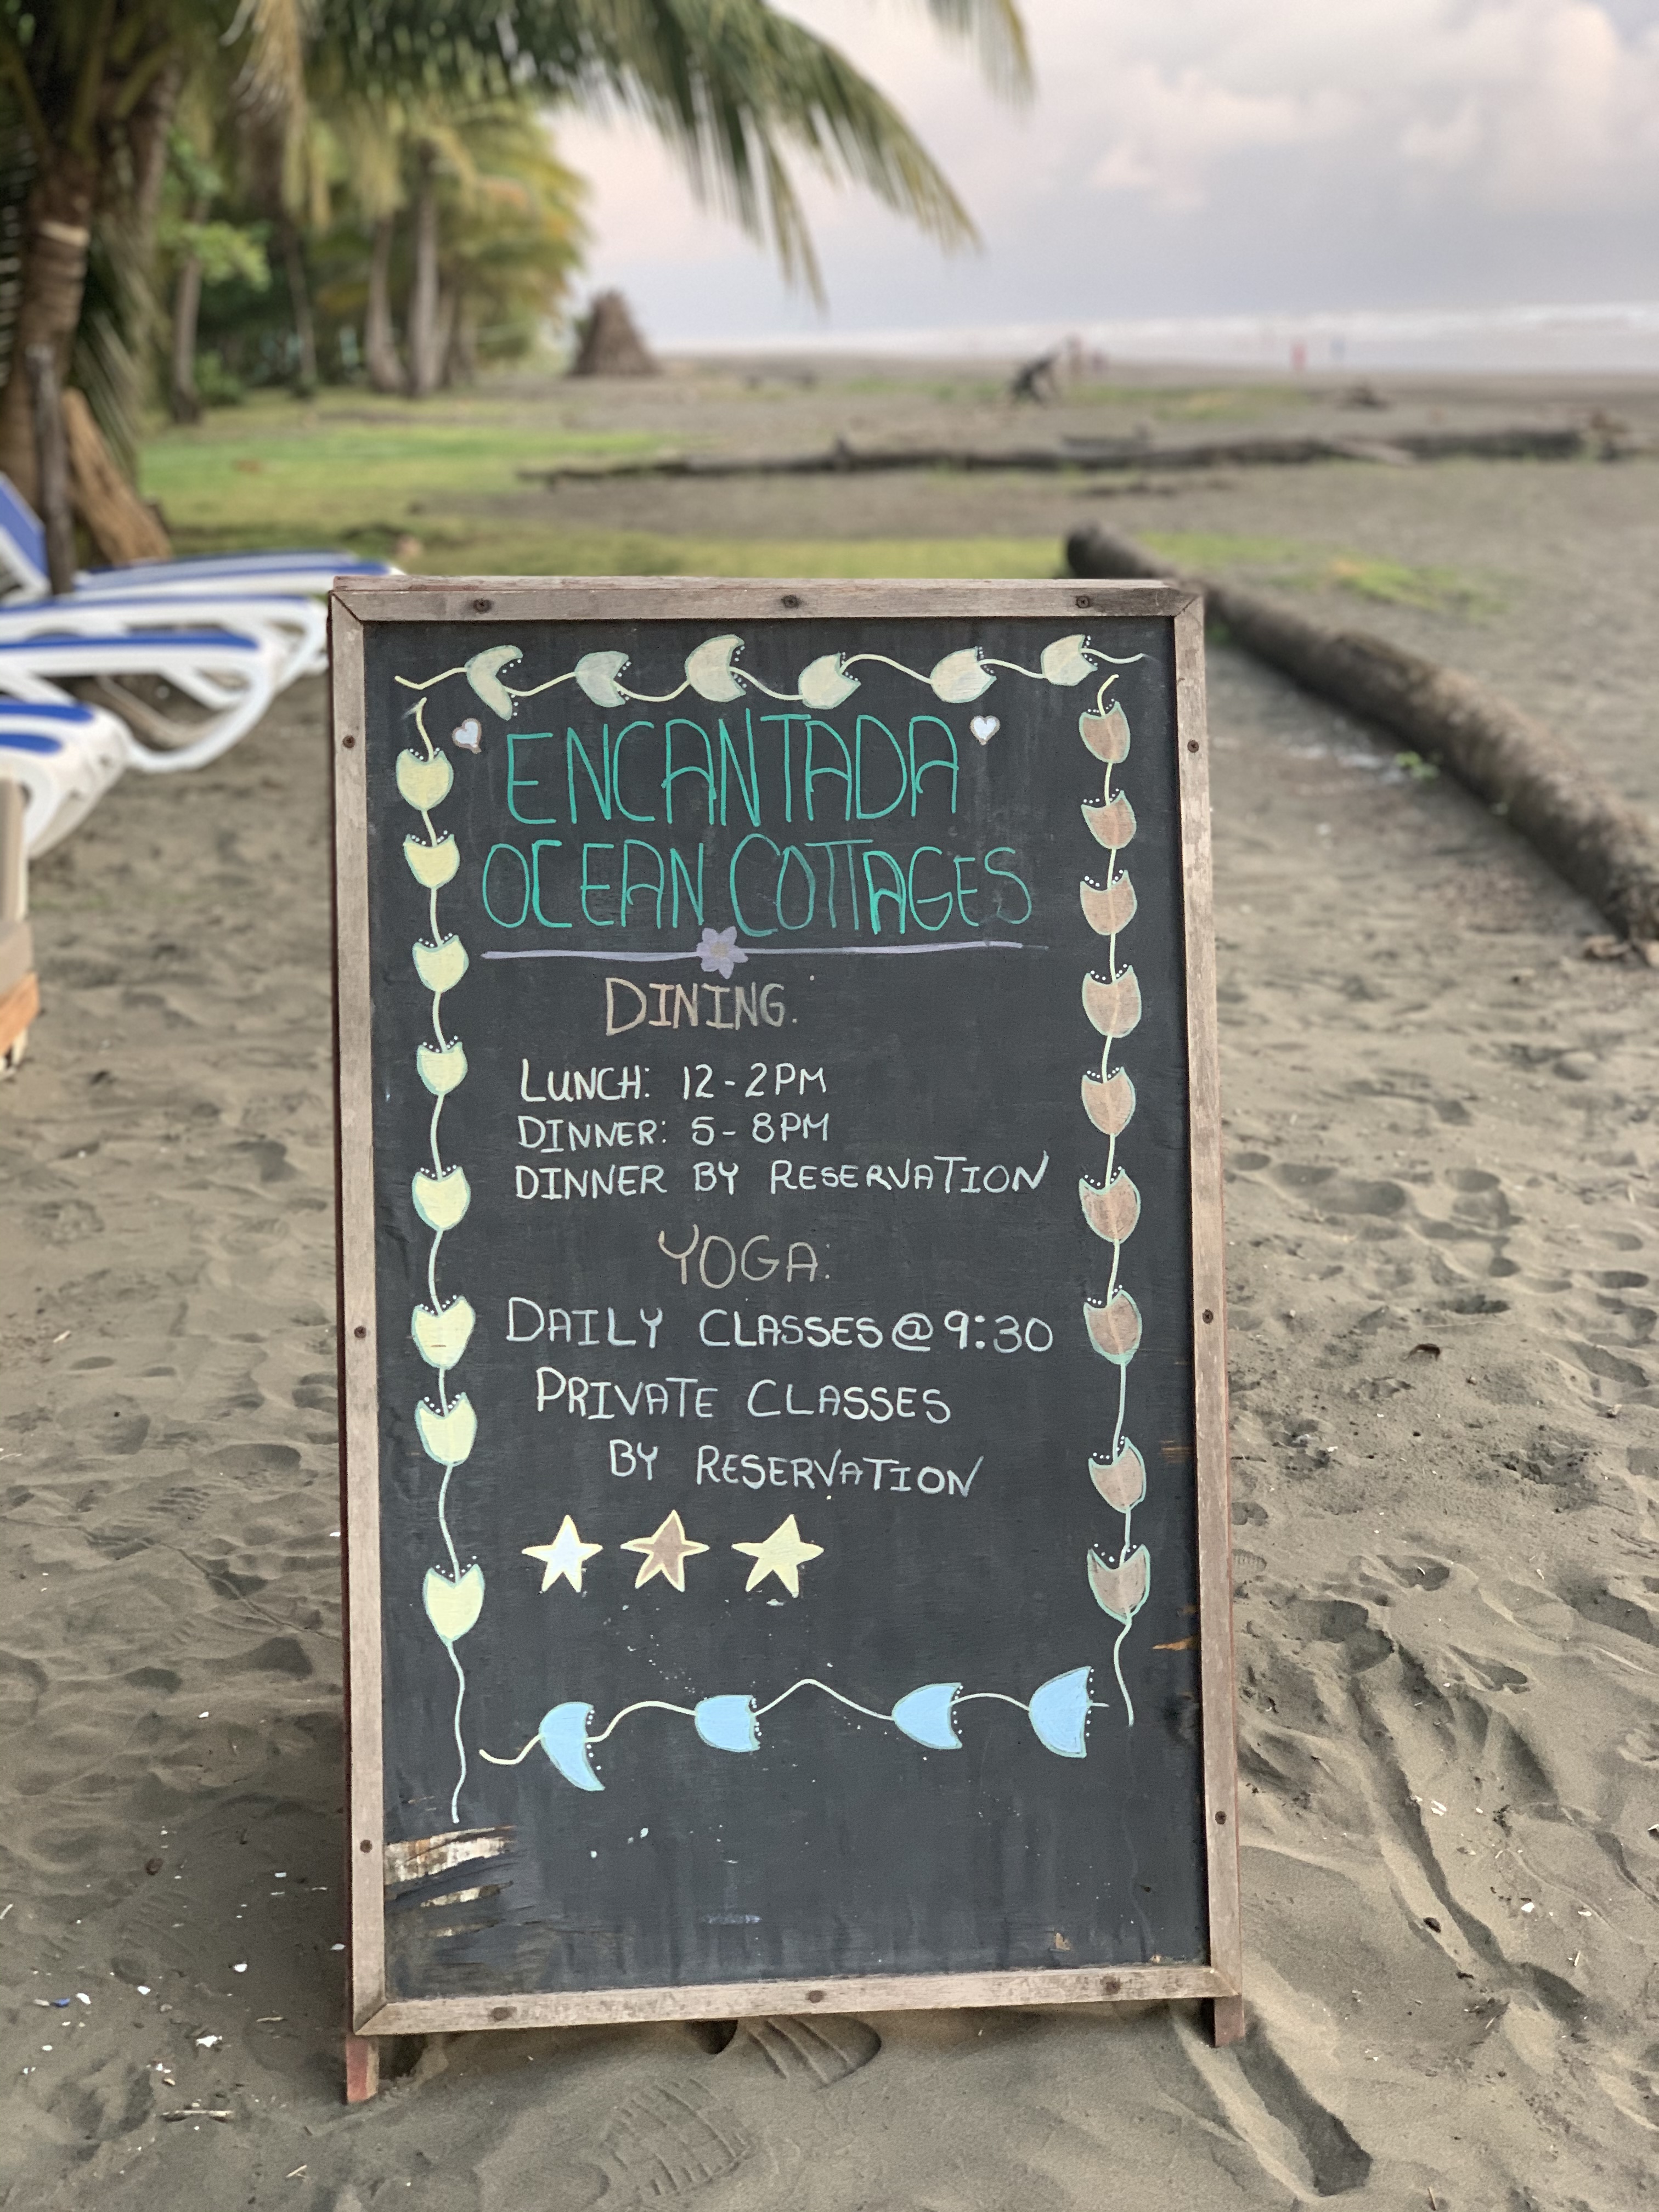 ENCANTADA
OCEAN COTTAGES
DINING:
LUNCH: 12-2PM
DINNER: 5-8PM
DINNER BY RESERVATION
YOGA:
DAILY CLASSES @ 9:30
PRIVATE CLASSES
BY RESERVATION